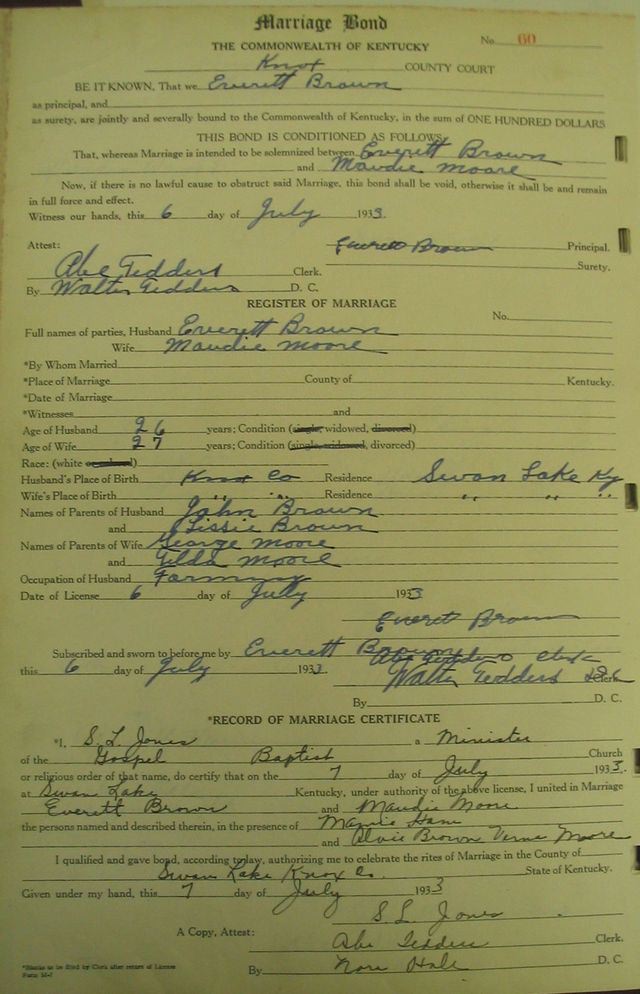 Marriage Bond
No. 60
THE COMMONWEALTH OF KENTUCKY
Knox COUNTY COURT
BE IT KNOWN, That we Everett Brown
as principal, and
as surety, are jointly and severally bound to the Commonwealth of Kentucky, in the sum of ONE HUNDRED DOLLARS
THIS BOND IS CONDITIONED AS FOLLOWS:
That, whereas Marriage is intended to be solemnized between Everett Brown
and Maudie Moore
Now, if there is no lawful cause to obstruct said Marriage, this bond shall be void, otherwise it shall be and remain
in full force and effect.
Witness our hands, this 6 day of July 1933.
Attest: Everett Brown Principal.
Abe Tedders Clerk. Surety.
By Walter Tedders D. C.
REGISTER OF MARRIAGE
No.
Full names of parties, Husband Everett Brown
Wife Maudie Moore
*By Whom Married
*Place of Marriage County of Kentucky.
*Date of Marriage
*Witnesses and
Age of Husband 26 years; Condition (single, widowed, divorced)
Age of Wife 27 years; Condition (single, widowed, divorced)
Race: (white or colored)
Husband's Place of Birth Knox Co Residence Swan Lake Ky
Wife's Place of Birth " " Residence " " "
Names of Parents of Husband John Brown
and Lissie Brown
Names of Parents of Wife George Moore
and Tilda Moore
Occupation of Husband Farming
Date of License 6 day of July 1933
Everet Brown
Subscribed and sworn to before me by Everett Brown
this 6 day of July 1933. Abe Tedders Clerk
Walter Tedders Clerk
By D. C.
*RECORD OF MARRIAGE CERTIFICATE
*I, S. L. Jones a Minister
of the Gospel Baptist Church
or religious order of that name, do certify that on the 7 day of July 1933.
at Swan Lake Kentucky, under authority of the above license, I united in Marriage
Everett Brown and Maudie Moore
the persons named and described therein, in the presence of Mamie
and Alvie Brown Verna Moore
I qualified and gave bond, according to law, authorizing me to celebrate the rites of Marriage in the County of
Swan Lake Knox Co. State of Kentucky.
Given under my hand, this 7 day of July 1933
S. L. Jones
A Copy, Attest: Abe Tedders Clerk.
By Nora Hale D. C.
*Blanks to be filled by Clerk after return of License